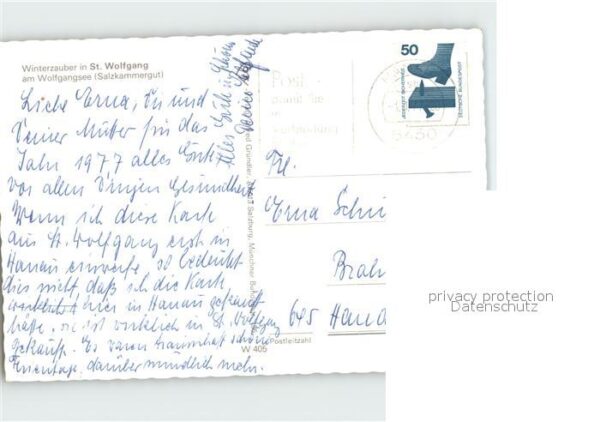 Winterzauber in St. Wolfgang
am Wolfgangsee (Salzkammergut)
Liebe Erna, Dir und
Deiner Mutter für das
Jahr 1977 alles Gute
vor allen Dingen Gesundheit
Wenn ich diese Karte
aus St. Wolfgang erst in
Hanau einwerfe so bedeutet
dies nicht, daß ich die Karte
hier in Hanau gekauft
habe, sie ist wirklich in St. Wolfgang
gekauft. Es waren traumhaft schöne
Ferientage, darüber mündlich mehr.
Alles
50
DEUTSCHE BUNDESPOST
Post
6450
Frl.
Erna
645 Hanau
Postleitzahl
W 405
privacy protection
Datenschutz